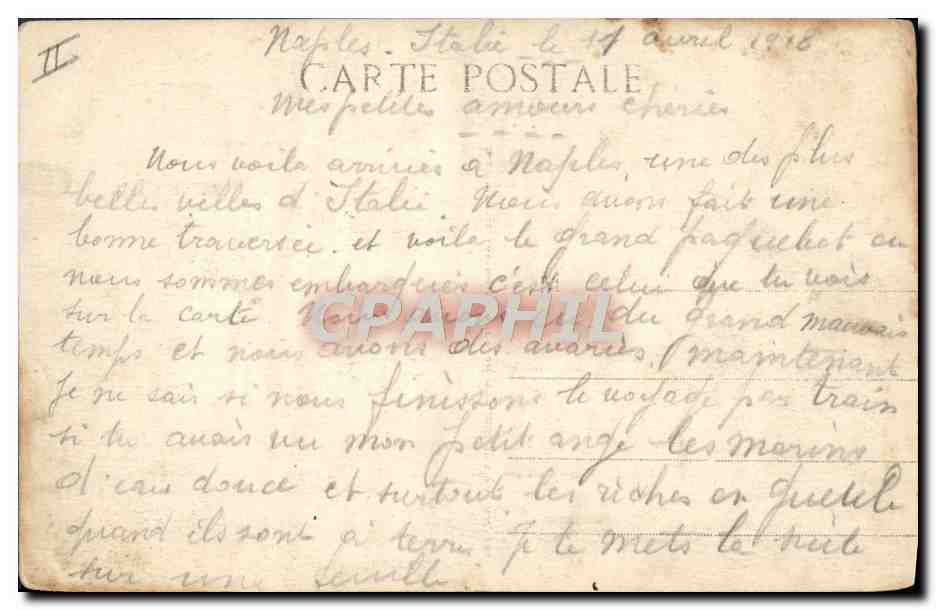 II
Naples - Italie le 11 avril 1918
CARTE POSTALE
Mes petites amours chéries
Nous voila arrivés à Naples, une des plus
belles villes d'Italie. Nous avons fait une
bonne traversée et voila le grand paquebot ou
nous sommes embarqués c'est celui que tu vois
sur la carte. Nous avons eu du grand mauvais
temps et nous avons des avaries, maintenant
Je ne sais si nous finissons le voyage par train
si tu avais vu mon petit ange les marins
d'eau douce et surtout les riches en gueule
quand ils sont à terre. Je te mets la suite
sur une feuille
CPAPHIL